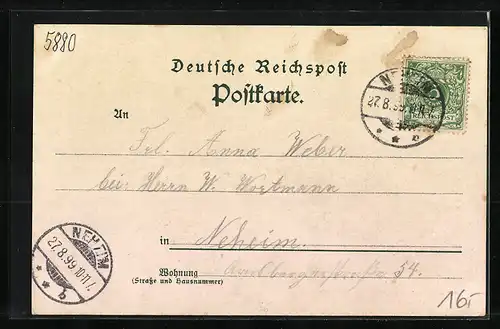 5880
Deutsche Reichspost
Postkarte.
NEHEIM
27.8.99.10-11.V.
* * b
An
Frl. Anna Weber
bei Herrn W. Wortmann
in Neheim.
Wohnung
(Straße und Hausnummer)
54.
NEHEIM
27.8.99.10-11.V.
* * b
16,-